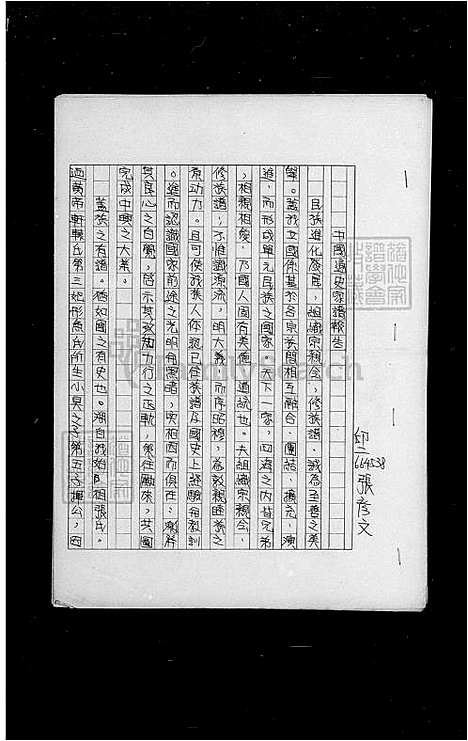 中國通史家譜報告
印二
664538
張彥文
民族進化發展,組織宗親會,修族譜,誠為至善之美
舉。蓋我立國係基於各宗族間相互融合、團結、擴充、演
進,而形成單元民族之國家。天下一家,四海之內皆兄弟
,相親相愛,乃國人固有美德、通統也。夫組織宗親會、
修族譜;不惟識源流,明大義,而序昭穆,為敦親睦族之
原動力。且可使我族人你認已往族譜及國史上經驗與教訓
。進而認識國家前途之光明與黑暗,
其良心之自覺,啟示其致知力行之正軌,策往勵來,共圖
完成中興之大業。
蓋族之有譜。猶如國之有史也。溯自我始祖張氏。
迺黃帝軒轅氏第三妃彤魚氏所生小昊之子第五子揮公,因